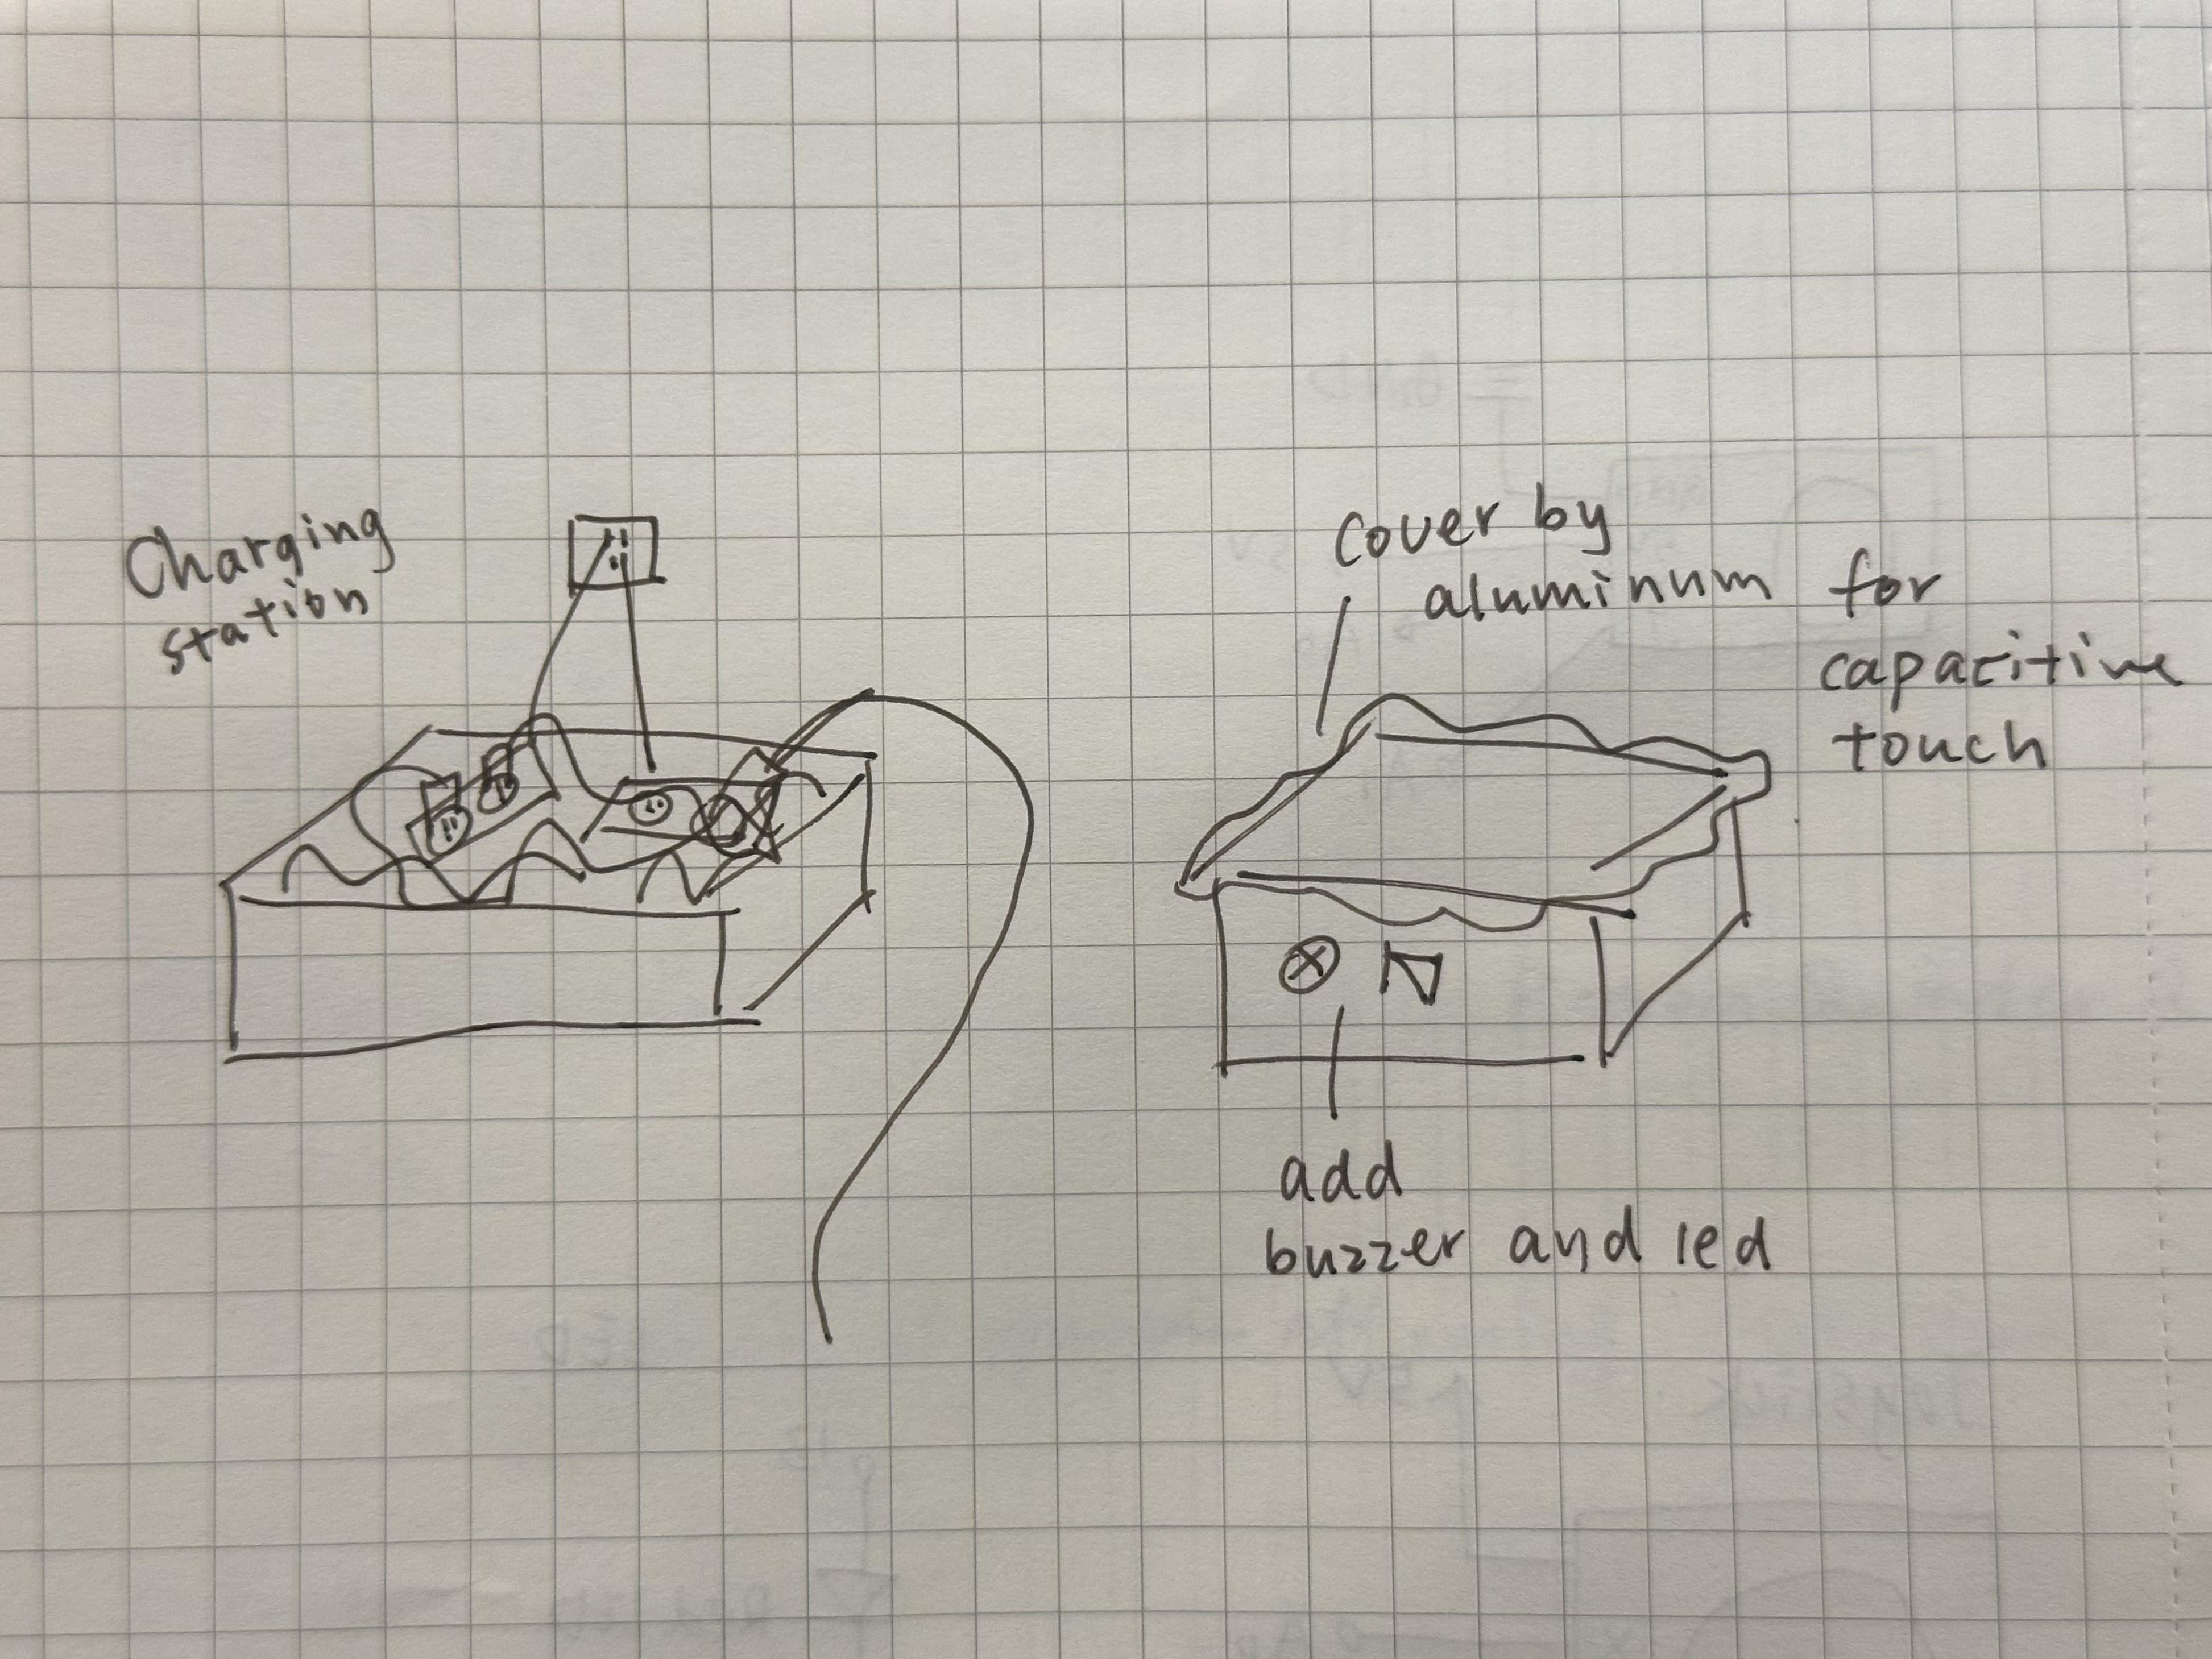 Charging
station
cover by
aluminum for
capacitive
touch
add
buzzer and led